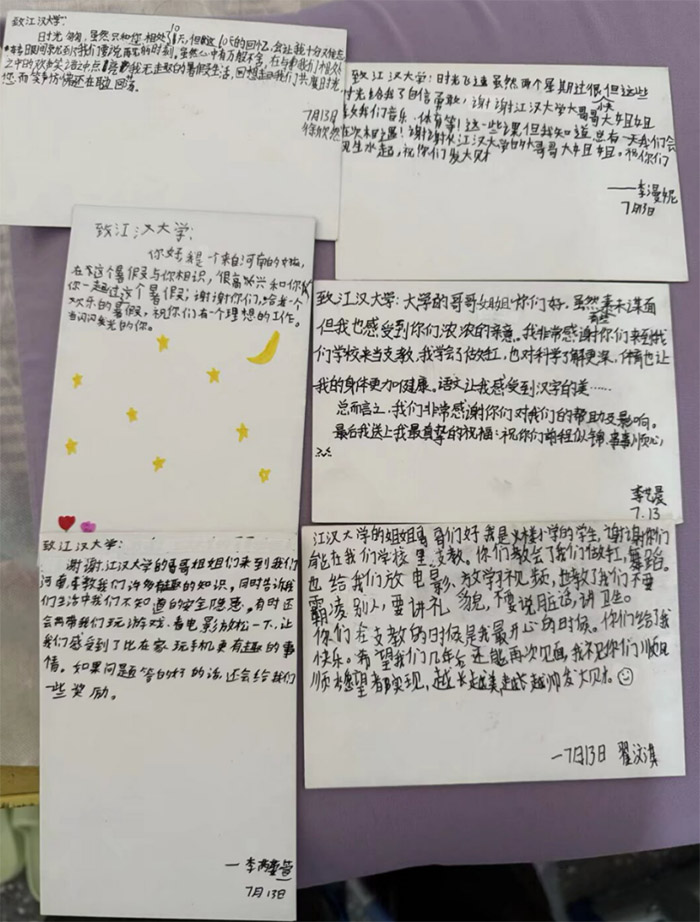 致江汉大学:
时光匆匆,虽然只和您相处了10天,但这10天的回忆,会让我十分
之中的欢如笑语之中点亮我无趣的暑假生活,回想起我们共度时光
您而笑声仿佛还在耳边回荡。
7月13日
致江汉大学:时光飞速虽然两个星期过很 但这些
时光给我了自信勇敢,谢谢江汉大学大哥哥大姐姐
教我们音乐、体育等!这一些课但我知道总有一天我们会
在次相遇!谢谢从江汉大学的大哥哥大姐姐。祝你们
生水起,祝你们发大财
——李漫妮
7月13日
致江汉大学:
你好 我是一个来自河南的女孩,
在这个暑假与你相识,很高兴和你
你一起过这个暑假,谢谢你们,给我一个
欢乐的暑假,祝你们有一个理想的工作。
当闪闪发光的你。
致江汉大学:大学的哥哥姐姐你们好,虽然素未谋面
但我也感受到你们浓浓的亲意。我非常感谢你们来到我
们学校来当支教,我学会了做缸,也对科学了解更深,体育也让
我的身体更加健康。语文让我感受到汉字的美……
总而言之,我们非常感谢你们对我们的帮助及影响。
最后我送上我最真挚的祝福:祝你们前程似锦,事事顺心,
7.13
致江汉大学:
谢谢江汉大学的哥哥姐姐们来到我们
河南,来教我们许多有趣的知识。同时告诉我
们生活中我们不知道的安全隐患。有时还
会带我们玩游戏、看电影放松一下,让
我们感受到了比在家玩手机更有趣的事
情。如果问题答的好的话,还会给我们
一些奖励。
7月13日
江汉大学的姐姐哥哥们好 我是 小学的学生,谢谢你们
能在我们学校里支教。你们教会了我们做缸,舞蹈。
也给我们放电影、放学视频,也教了我们不要
霸凌别人,要讲礼貌,不要说脏话,讲卫生。
你们在支教的时候是我最开心的时候。你们给了我
快乐。希望我们几年后还能再次见面,我祝你们顺风
顺水愿望都实现,越长越美,越长越帅发大财。
—7月13日 翟汶淇